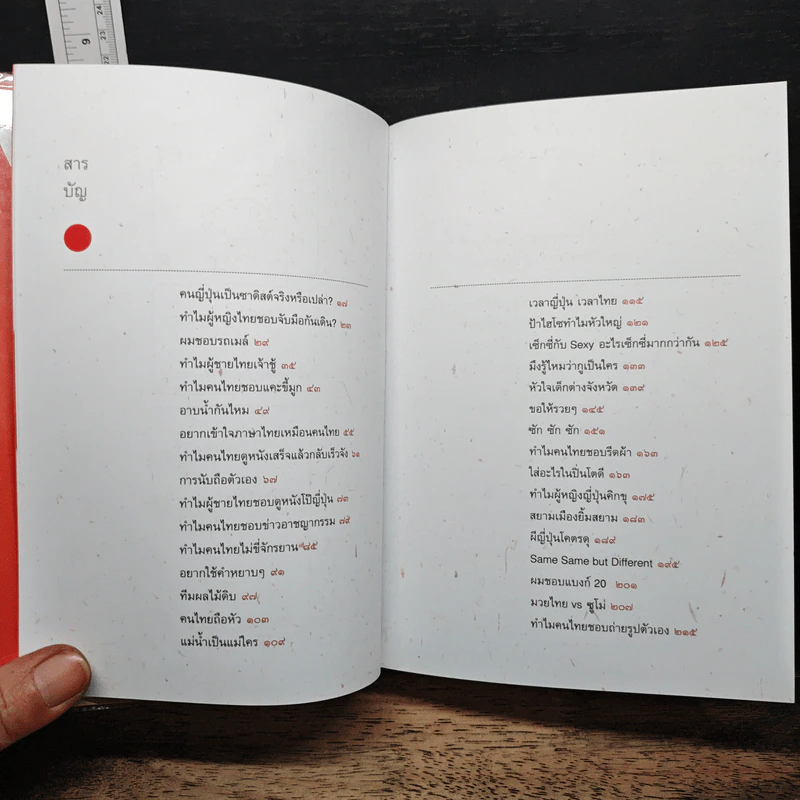 9
24
23
22
สาร
บัญ
คนญี่ปุ่นเป็นซาดิสต์จริงหรือเปล่า? ๑๗
ทำไมผู้หญิงไทยชอบจับมือกันเดิน? ๒๓
ผมชอบรถเมล์ ๒๙
ทำไมผู้ชายไทยเจ้าชู้ ๓๕
ทำไมคนไทยชอบแคะขี้มูก ๔๓
อาบน้ำกันไหม ๔๙
อยากเข้าใจภาษาไทยเหมือนคนไทย ๕๕
ทำไมคนไทยดูหนังเสร็จแล้วกลับเร็วจัง ๖๑
การนับถือตัวเอง ๖๗
ทำไมผู้ชายไทยชอบดูหนังโป๊ญี่ปุ่น ๗๓
ทำไมคนไทยชอบข่าวอาชญากรรม ๗๙
ทำไมคนไทยไม่ขี่จักรยาน ๘๕
อยากใช้คำหยาบๆ ๙๑
ทีมผลไม้ดิบ ๙๗
คนไทยถือหัว ๑๐๓
แม่น้ำเป็นแม่ใคร ๑๐๙
เวลาญี่ปุ่น เวลาไทย ๑๑๕
ป้าไฮโซทำไมหัวใหญ่ ๑๒๑
เซ็กซี่กับ Sexy อะไรเซ็กซี่มากกว่ากัน ๑๒๕
มึงรู้ไหมว่ากูเป็นใคร ๑๓๓
หัวใจเด็กต่างจังหวัด ๑๓๙
ขอให้รวยๆ ๑๔๕
ซัก ซัก ซัก ๑๕๑
ทำไมคนไทยชอบรีดผ้า ๑๖๓
ใส่อะไรในปิ่นโตดี ๑๖๓
ทำไมผู้หญิงญี่ปุ่นคิกขุ ๑๗๕
สยามเมืองยิ้มสยาม ๑๘๓
ผีญี่ปุ่นโคตรดุ ๑๘๙
Same Same but Different ๑๙๕
ผมชอบแบงก์ 20 ๒๐๑
มวยไทย vs ซูโม่ ๒๐๗
ทำไมคนไทยชอบถ่ายรูปตัวเอง ๒๑๕